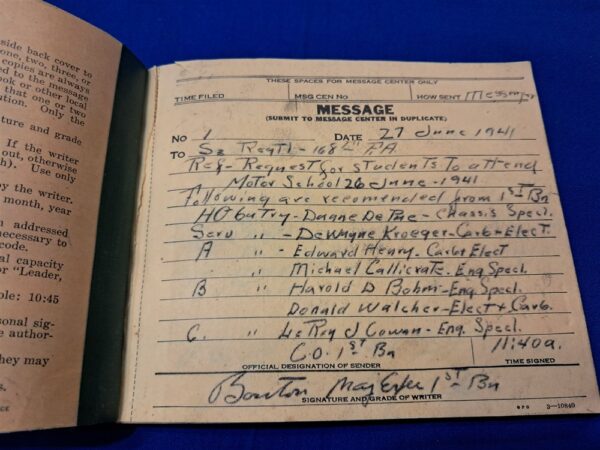 side back cover to
one, two, three, or
copies are always
ed to the message
ook or other local
that one or two
ation. Only the
ture and grade
If the writer
out, otherwise
h). Use only
by the writer.
month, year
n addressed
necessary to
code.
al capacity
r "Leader,
ple: 10:45
sonal sig-
e author-
they may
s.
THESE SPACES FOR MESSAGE CENTER ONLY
TIME FILED MSG CEN No HOW SENT Messenger
MESSAGE
(SUBMIT TO MESSAGE CENTER IN DUPLICATE)
No 1 DATE 27 June 1941
TO S3 Regtl - 168th FA
Ref - Request for students to attend
Motor School 26 June - 1941
Following are recomended from 1st Bn
HQ Batry - Duane De - Chassis Specl.
Serv " - DeWayne Kroeger - Carb + Elect.
A " - Edward Henry - Carb + Elect
" Michael Callicrate. Eng Specl.
B " Harold D Bohm - Eng. Specl.
Donald Walcher - Elect + Carb.
C. " LeRoy J Cowan - Eng. Specl.
C.O. 1st Bn 11:40a.
OFFICIAL DESIGNATION OF SENDER TIME SIGNED
Maj 1st Bn
SIGNATURE AND GRADE OF WRITER
GPO 3—10840